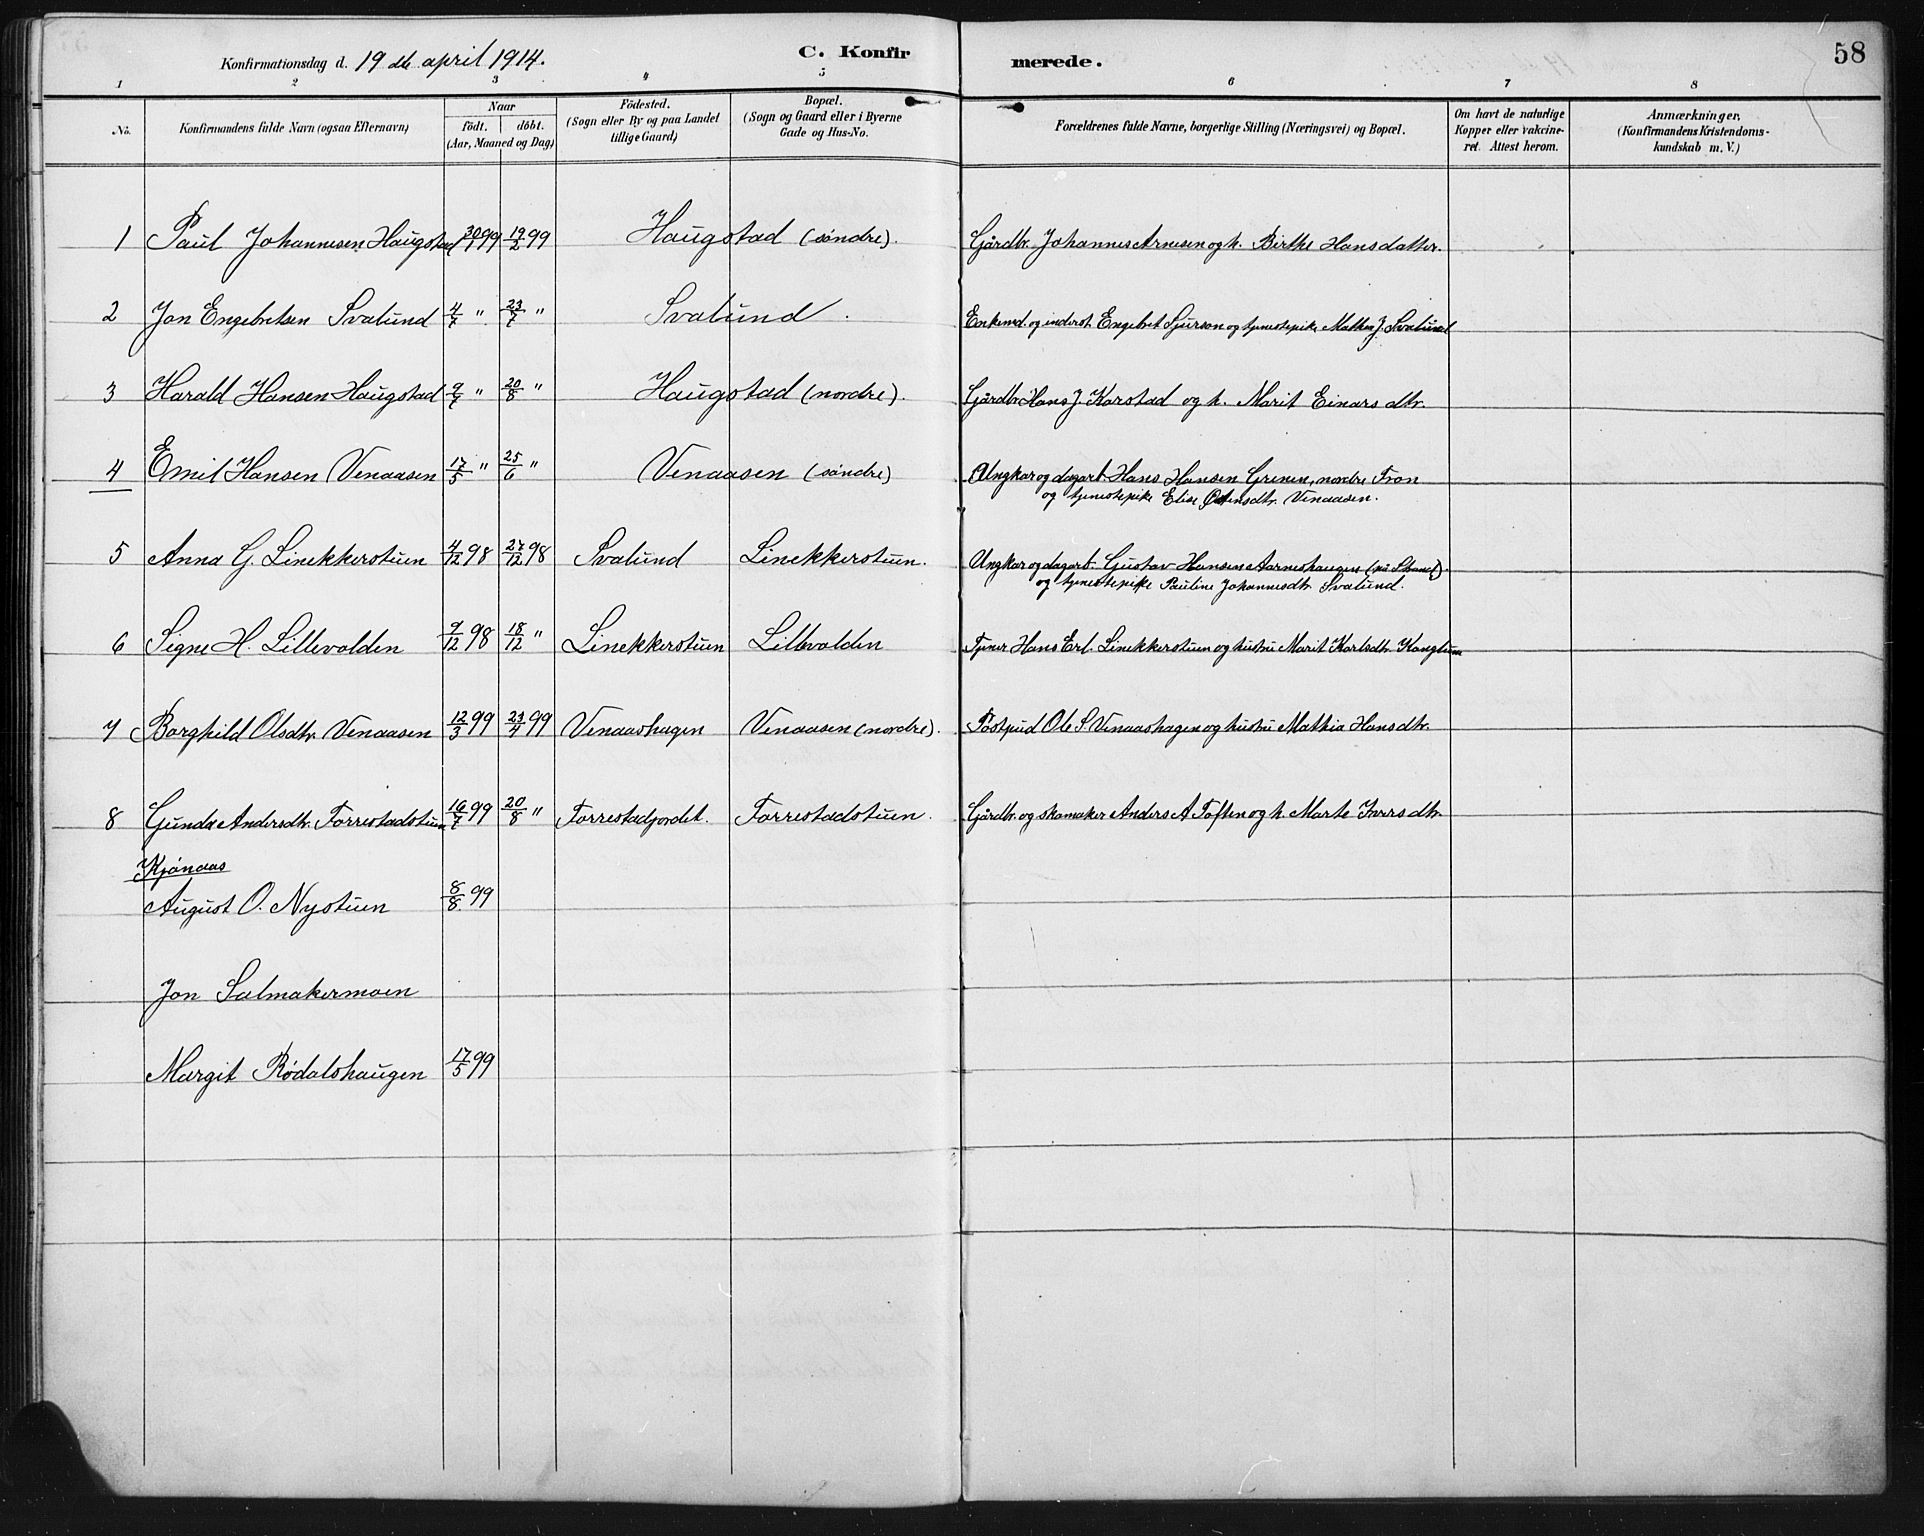 Konfirmationsdag d. 19 de april 1914. C. Konfirmerede. 58
1 2 3 4 5 6 7 8
No.
Konfirmandens fulde Navn (ogsaa Efternavn)
Naar
født. døbt.
(Aar, Maaned og Dag)
Fødested.
(Sogn eller By og paa Landet
tillige Gaard)
Bopæl.
(Sogn og Gaard eller i Byerne
Gade og Hus-No.
Forældrenes fulde Navne, borgerlige Stilling (Næringsvei) og Bopæl.
Om havt de naturlige
Kopper eller vakcine-
ret. Attest herom.
Anmærkninger,
(Konfirmandens Kristendoms-
kundskab m. V.)
1 Paul Johannesen Haugstad 30/1 99 19/2 99 Haugstad (søndre). Gårdbr. Johannes Arnesen og h. Birthe Hansdatter.
2 Jon Engebretsen Svalund 4/7 " 23/7 " Svalund. Enkemd. og inderst. Engebret Sjurson og tjenestepike Mathea J. Svalund
3 Harald Hansen Haugstad 9/7 " 20/8 " Haugstad (nordre). Gårdbr. Hans J. Karstad og h. Marit Einarsdtr.
4 Emil Hansen Venaasen 17/5 " 25/6 " Venaasen (søndre) Ungkar og dagarb. Hans Hansen Grenen, nordre Fron
og tjenestepike Elise Østensdtr. Venaasen.
5 Anna G. Linekkerstuen 4/12 98 27/12 98 Svalund Linekkerstuen. Ungkar og dagarb. Gustav Hansen Aarneshaugen (på Strand)
og tjenestepike Pauline Johannesdtr. Svalund.
6 Signe H. Lillevolden 9/12 98 18/12 " Linekkerstuen Lillevolden Tjener Hans Erl. Linekkerstuen og hustru Marit Karlsdtr. Kanglum
7 Borghild Olsdtr. Venaasen 12/3 99 23/4 99 Venaashagen Venaasen (nordre). Postpud Ole S. Venaashagen og hustru Mathia Hansdtr.
8 Gunda Andersdtr. Forrestadstuen 16/7 99 20/8 " Forrestadjordet. Forrestadstuen. Gårdbr. og skomaker Anders A Toften og h. Marte Iversdtr.
Kjönaas
August O. Nystuen 8/8 99
Jon Salmakermoen
Margit Rødalshaugen 17/5 99